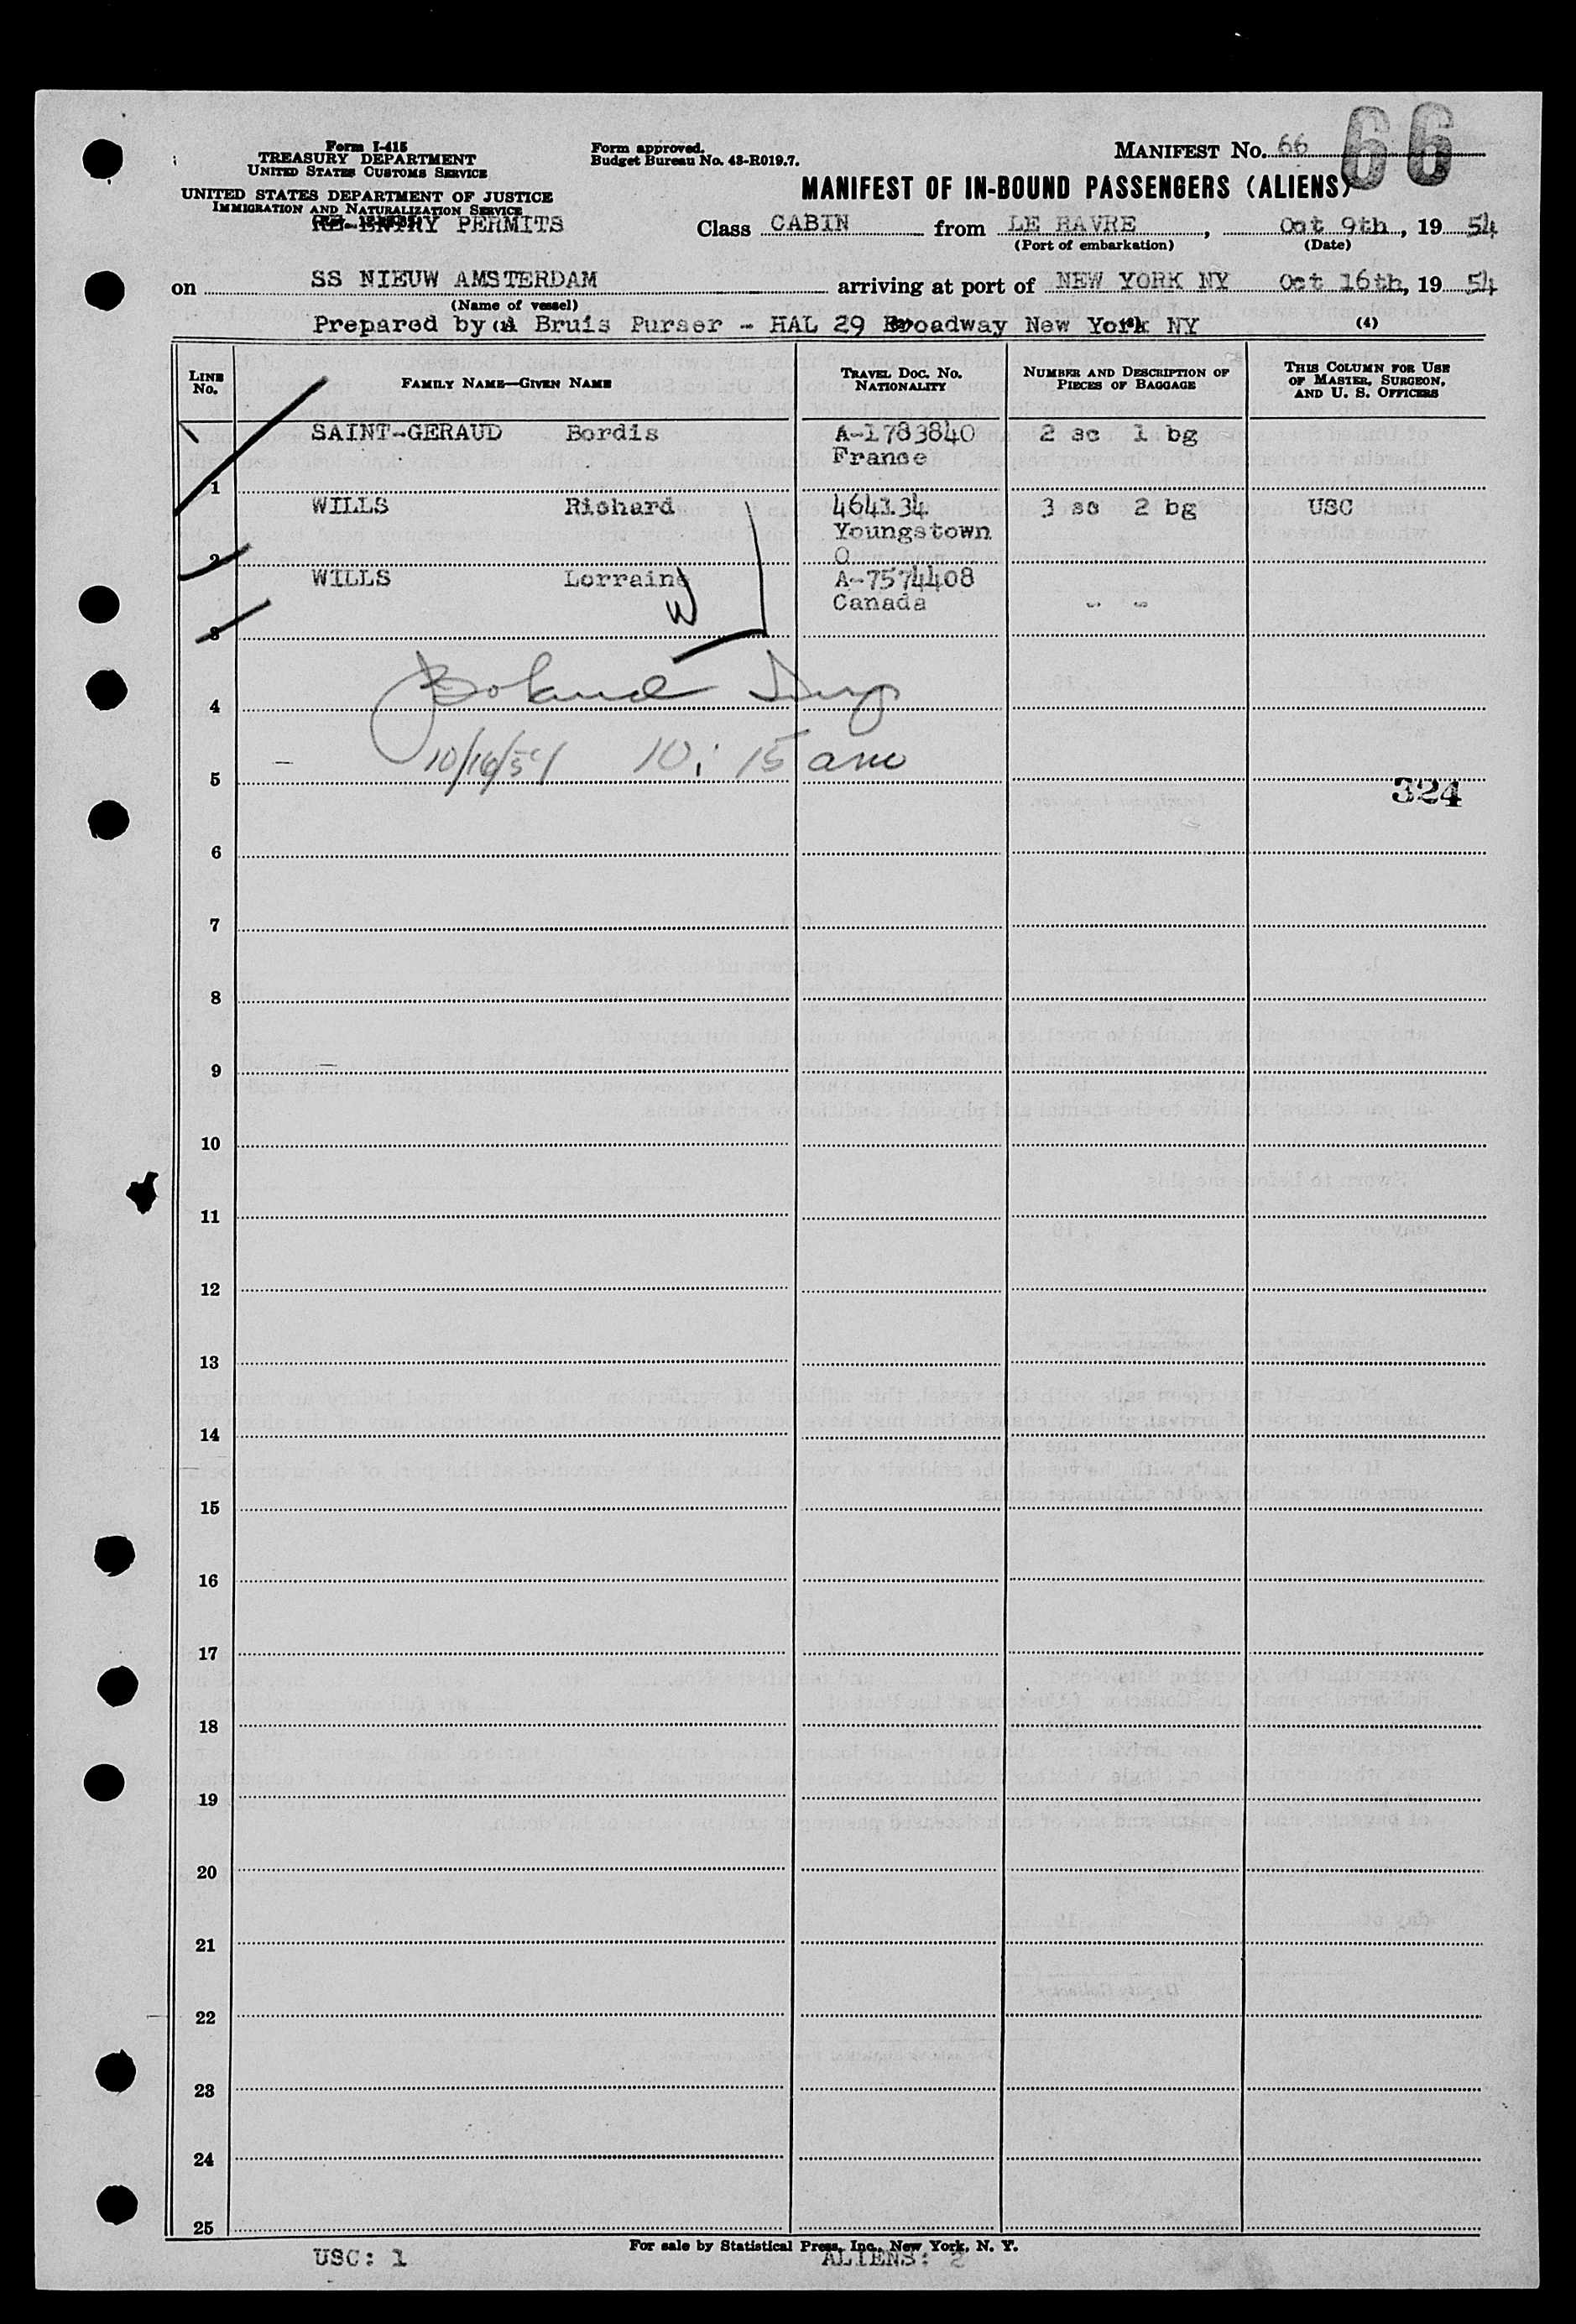 Form I-415
TREASURY DEPARTMENT
UNITED STATES CUSTOMS SERVICE
UNITED STATES DEPARTMENT OF JUSTICE
IMMIGRATION AND NATURALIZATION SERVICE
Form approved.
Budget Bureau No. 43-R019.7.
MANIFEST NO. 66
66
MANIFEST OF IN-BOUND PASSENGERS (ALIENS)
RE-ENTRY PERMITS Class CABIN from LE HAVRE, Oct 9th, 19 54
(Port of embarkation) (Date)
on SS NIEUW AMSTERDAM arriving at port of NEW YORK NY Oct 16th, 19 54
(Name of vessel)
Prepared by A Bruis Purser - HAL 29 Broadway New York NY (4)
LINE NO. FAMILY NAME—GIVEN NAME TRAVEL DOC. NO. NATIONALITY NUMBER AND DESCRIPTION OF PIECES OF BAGGAGE THIS COLUMN FOR USE OF MASTER, SURGEON, AND U. S. OFFICERS
SAINT-GERAUD Bordis A-1783840 2 sc 1 bg
France
1
WILLS Richard 464134 3 sc 2 bg USC
Youngstown
2 O
WILLS Lorraine A-7574408
Canada - -
W
3
4
10/16/54 10:15 am
5
324
6
7
8
9
10
11
12
13
14
15
16
17
18
19
20
21
22
23
24
25
For sale by Statistical Press, Inc., New York, N. Y.
USC: 1 ALIENS: 2